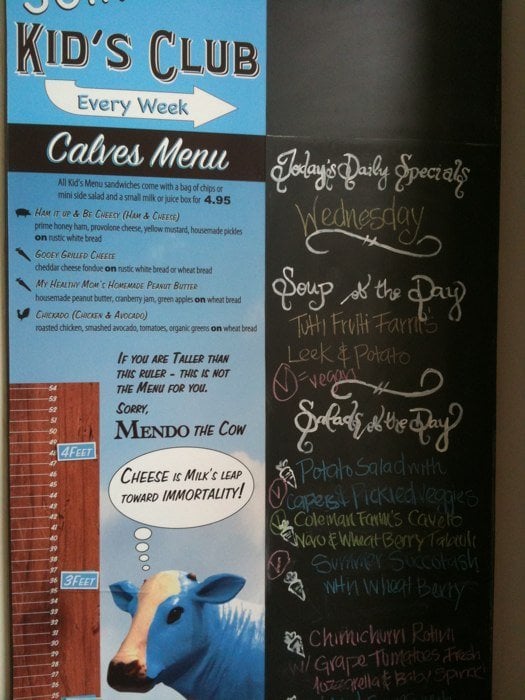 KID'S CLUB
Every Week
Calves Menu
All Kid's Menu sandwiches come with a bag of chips or
mini side salad and a small milk or juice box for 4.95
HAM IT UP & BE CHEESY (HAM & CHEESE)
prime honey ham, provolone cheese, yellow mustard, housemade pickles
on rustic white bread
GOOEY GRILLED CHEESE
cheddar cheese fondue on rustic white bread or wheat bread
MY HEALTHY MOM'S HOMEMADE PEANUT BUTTER
housemade peanut butter, cranberry jam, green apples on wheat bread
CHICKADO (CHICKEN & AVOCADO)
roasted chicken, smashed avocado, tomatoes, organic greens on wheat bread
IF YOU ARE TALLER THAN
THIS RULER - THIS IS NOT
THE MENU FOR YOU.
SORRY,
MENDO THE COW
CHEESE IS MILK'S LEAP
TOWARD IMMORTALITY!
54
53
52
51
50
49
4 FEET
47
46
45
44
43
42
41
40
39
38
37
36
3 FEET
35
33
32
31
30
29
28
27
26
25
Today's Daily Specials
Wednesday
Soup of the Day
Tutti Frutti Farm's
Leek & Potato
V = veggie
Salads of the Day
Potato Salad with
V Capers & Pickled Veggies
Coleman Farm's Cavelo
Nero & Wheat Berry
V Summer Succotash
with Wheat Berry
Chimichurri Rotini
w/ Grape Tomatoes, Fresh
Mozzarella & Baby